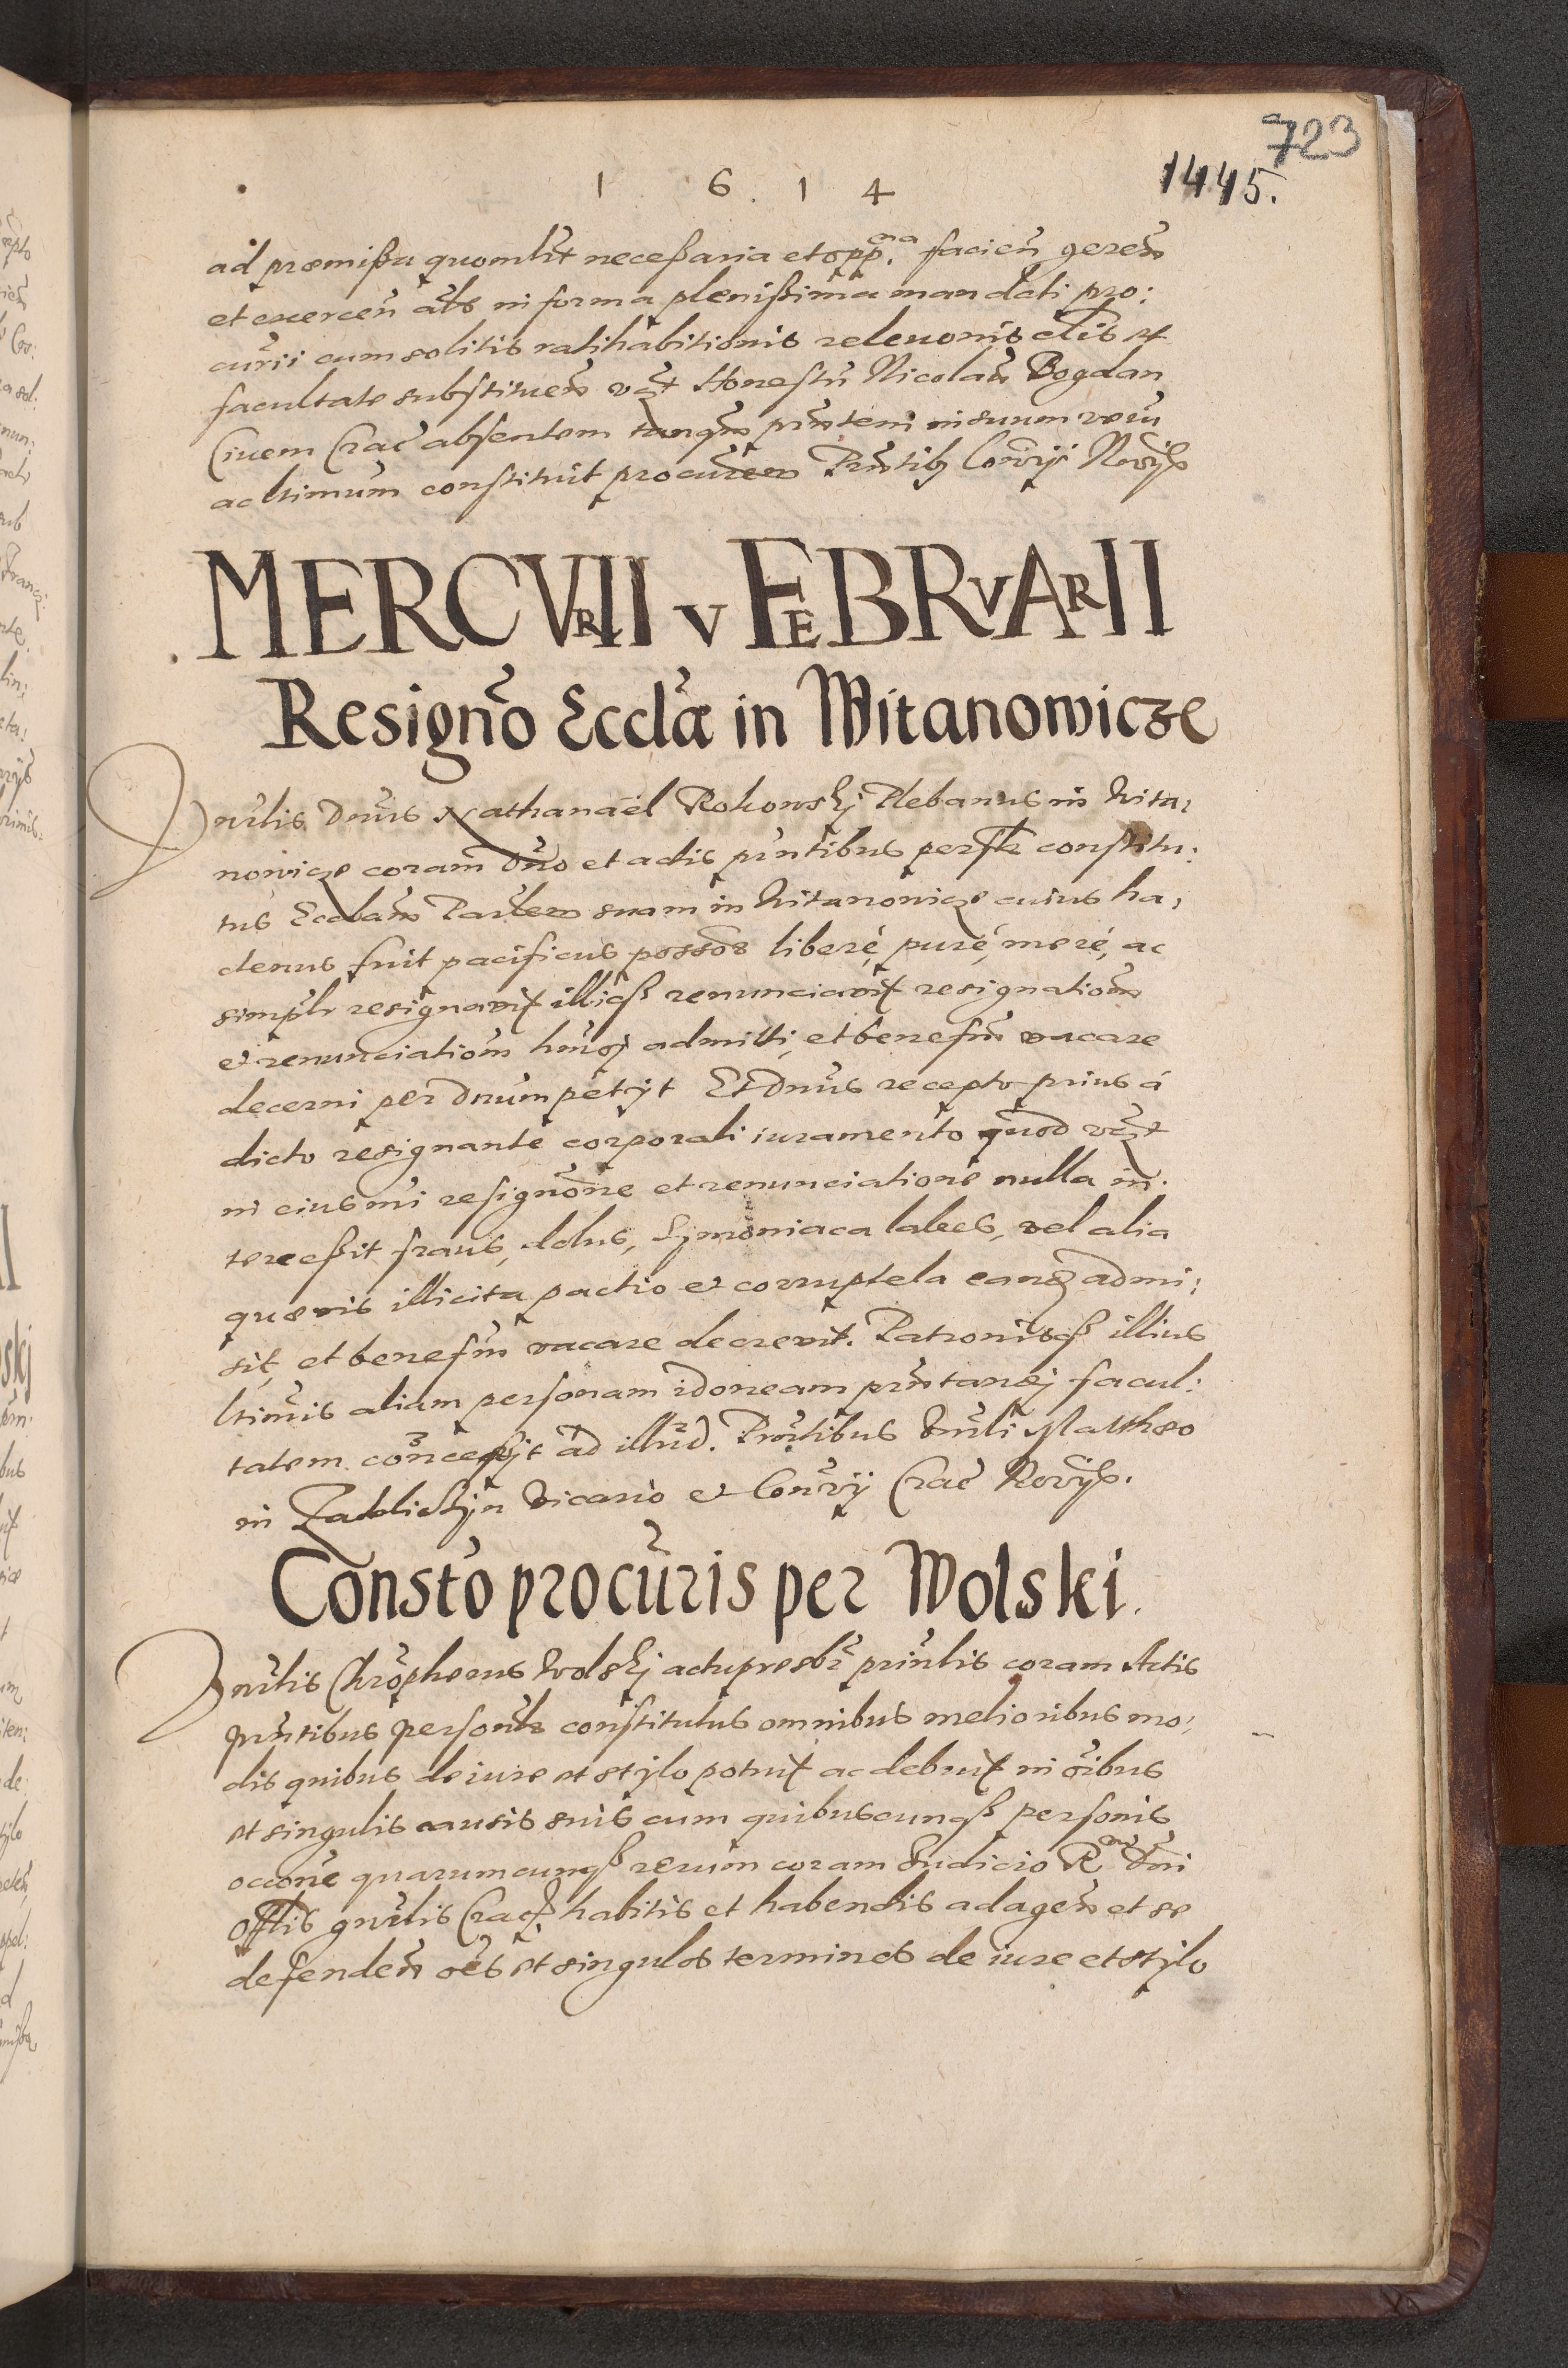 723
1445.
1 6. 1 4
ad præmissa quomlt necessaria et opp.na facien̄ geren̄
et exercen̄ als in forma plenissima mandati pro:
curii cum solitis ratihabitionis releuonis clis et
facultate substituen̄ vꝫt Honestū Nicolaū Bogdan
Ciuem Crac̄ absentem tanqm̄ pn̄tem in suum verū
ac ltimum constituit procurem Pn̄tibꝫ
MERCVRII V FEBRVARII
Resigno Eccla in Witanowicze
Vnrlis Dnus Nathanaël Rokowskj Plebanus in Wita,
nowicze coram dno et actis pn̄tibus persr constitu:
tus Ecclam Parlem suam in Witanowicze cuius ha,
ctenus fuit pacificus possos liberé, puré, meré, ac
simplr resignavit illiqꝫ renunciavit resignationē
et renunciationē huiꝰj admitti, et benefm̄ vacare
decerni per Dnum petijt Et Dnus recepto prius á
dicto resignante corporali iuramento quod vꝫt
in eiusmi resignōne et renunciatione nulla in:
tercessit fraus, dolus, Symoniaca labes, vel alia
quævis illicita pactio et corruptela eanꝫ admi:
sit, et benefm̄ vacare decrevit. Patronisqꝫ illius
ltimis aliam personam idoneam pn̄tandj facul:
tatem concessit ad illud. Pn̄tibus Vnrli Matthæo
in Zakliczyn Vicario et Crac̄
Consto procuris per Wolski.
Vnrlis Chrophorus Wolskj actupresbr prin̄lis coram Actis
pn̄tibus personlr constitutus omnibus melioribus mo,
dis quibus de iure et stylo potuit ac debuit in oībus
et singulis causis suis cum quibuscunqꝫ personis
occōne quarumcunqꝫ rerum coram Judicio R.mi Dni
Offlis gnrlis Crac. habitis et habendis ad agen̄ et se
defenden̄ oēs et singulos terminos de iure et stylo